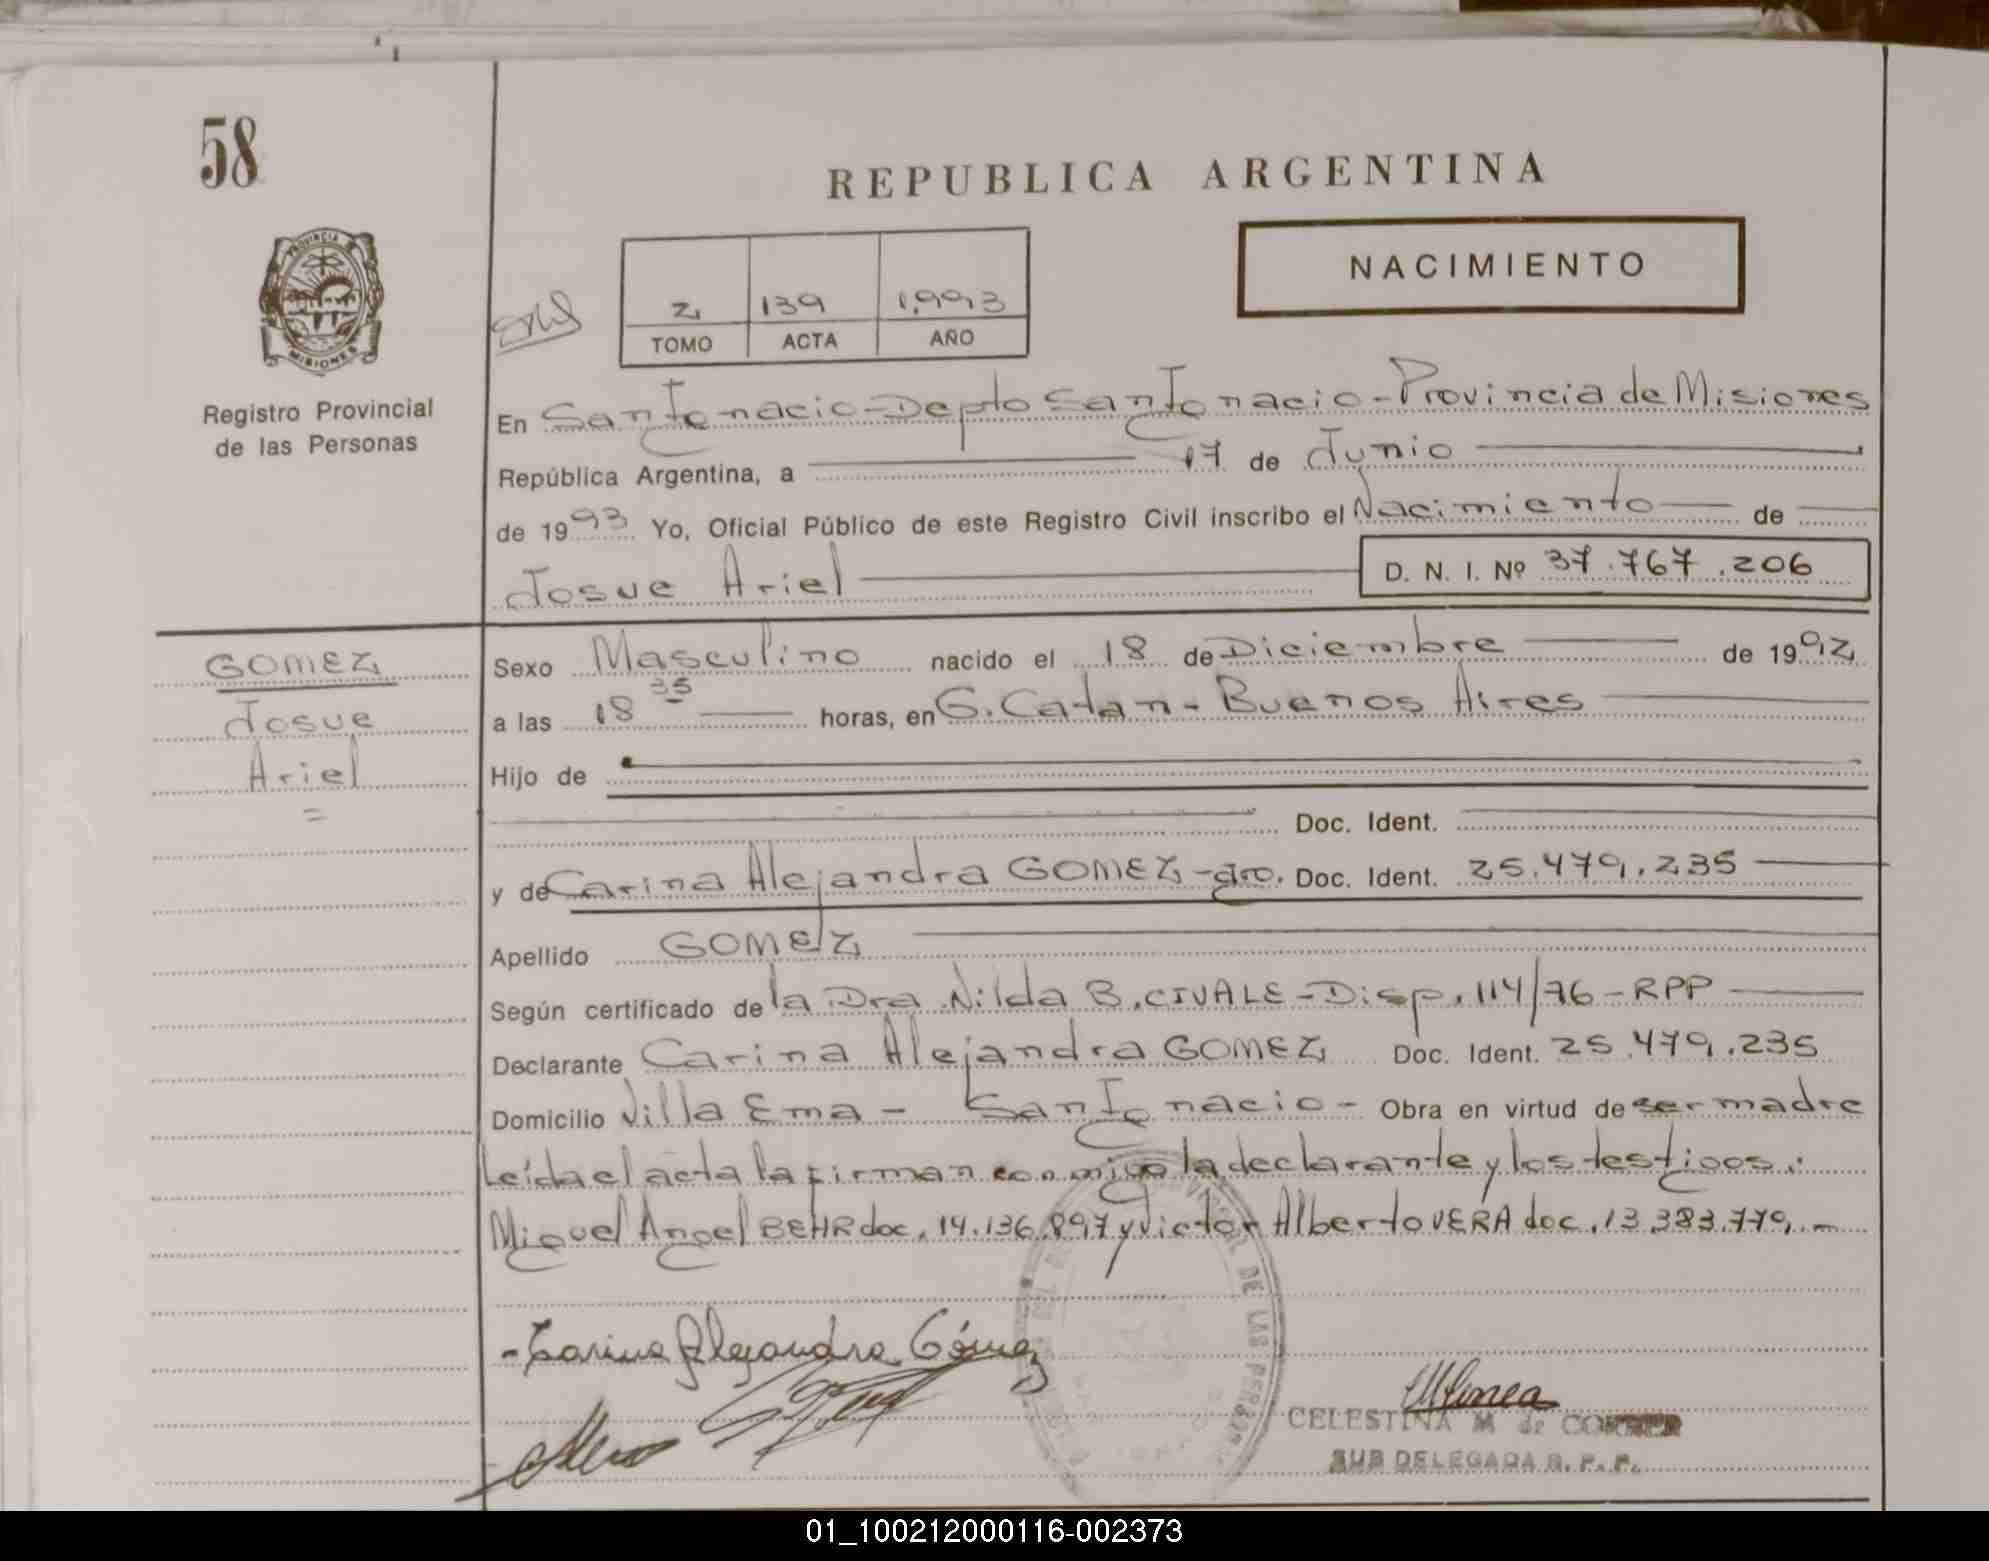 58
REPUBLICA ARGENTINA
NACIMIENTO
2 139 1.993
TOMO ACTA AÑO
PROVINCIA
MISIONES
Registro Provincial
de las Personas
En San Ignacio-Depto San Ignacio-Provincia de Misiones
República Argentina, a 17 de Junio
de 1993 Yo, Oficial Público de este Registro Civil inscribo el Nacimiento de
Josue Ariel D. N. I. Nº 37.767.206
GOMEZ
Josue
Ariel
Sexo Masculino nacido el 18 de Diciembre de 1992
a las 18 35 horas, en G. Catan - Buenos Aires
Hijo de
Doc. Ident.
y de Carina Alejandra GOMEZ Doc. Ident. 25.479.235
Apellido GOMEZ
Según certificado de la Dra. Nilda B. CIVALE - Disp. 114/76 - RPP
Declarante Carina Alejandra GOMEZ Doc. Ident. 25.479.235
Domicilio Villa Ema - San Ignacio - Obra en virtud de ser madre
Leída el acta la firman conmigo la declarante y los testigos:
Miguel Angel BEHR doc. 14.136.897 y Victor Alberto VERA doc. 13.383.779.-
- Carina Alejandra Gómez
CELESTINA M de
SUB DELEGADA R. P. P.
DE LAS PERSONAS
01_100212000116-002373